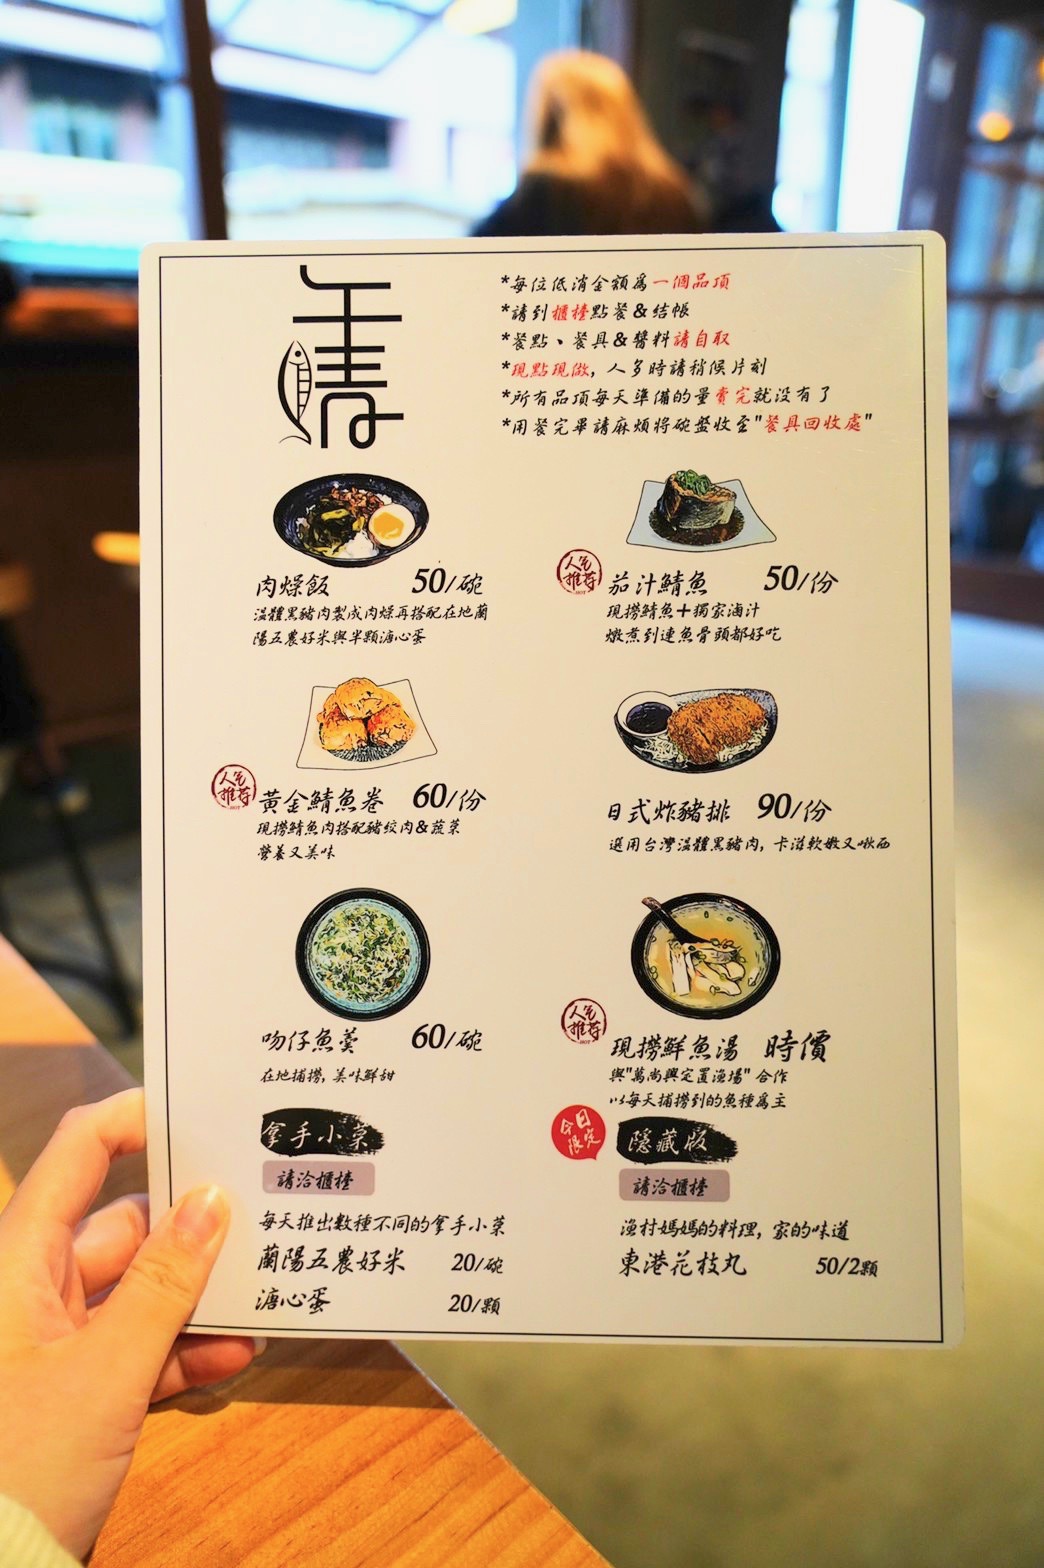 *每位低消金額為一個品項
*請到櫃檯點餐&結帳
*餐點、餐具&醬料請自取
*現點現做，人多時請稍候片刻
*所有品項每天準備的量賣完就沒有了
*用餐完畢請麻煩將碗盤收至"餐具回收處"
肉燥飯 50/碗
溫體黑豬肉製成肉燥再搭配在地蘭
陽五農好米與半顆溏心蛋
人氣
推薦
茄汁鯖魚 50/份
現撈鯖魚+獨家滷汁
燉煮到連魚骨頭都好吃
人氣
推薦
黃金鯖魚卷 60/份
現撈鯖魚肉搭配豬絞肉&蔬菜
營養又美味
日式炸豬排 90/份
選用台灣溫體黑豬肉，卡滋軟嫩又啾西
吻仔魚羹 60/碗
在地捕撈，美味鮮甜
人氣
推薦
現撈鮮魚湯 時價
與"萬尚興定置漁場"合作
以每天捕撈到的魚種為主
拿手小菜
請洽櫃檯
每天推出數種不同的拿手小菜
蘭陽五農好米 20/碗
溏心蛋 20/顆
今日
限定
隱藏版
請洽櫃檯
漁村媽媽的料理，家的味道
東港花枝丸 50/2顆